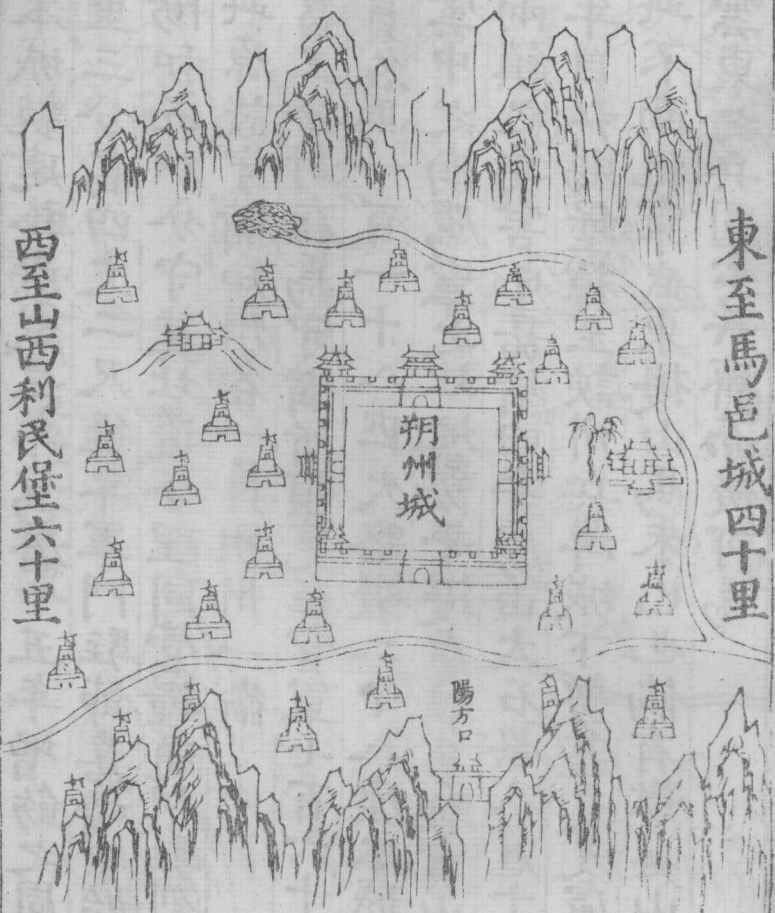 東至馬邑城四十里
朔州城
陽方口
西至山西利民堡六十里